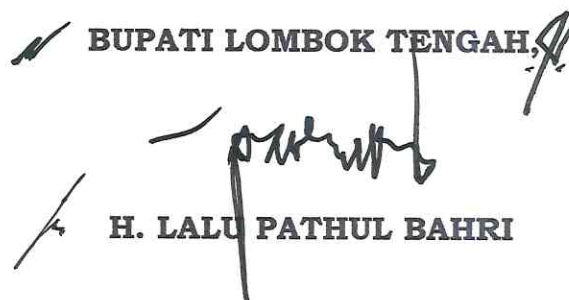 BUPATI LOMBOK TENGAH,
H. LALU PATHUL BAHRI